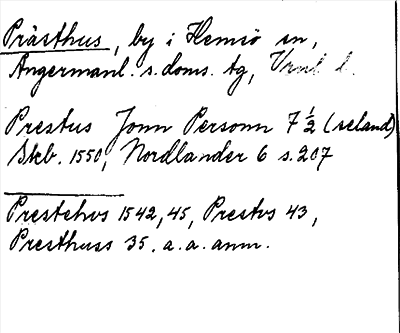 Prästhus, by i Hemsö sn,
Ångermanl. s. doms. tg, Vrml l.
Prestus Jonn Personn 7 ½ (seland)
Skb. 1550, Nordlander 6 s. 207
Prestehvs 1542, 45, Prestvs 43,
Presthuss 35. a. a. anm.